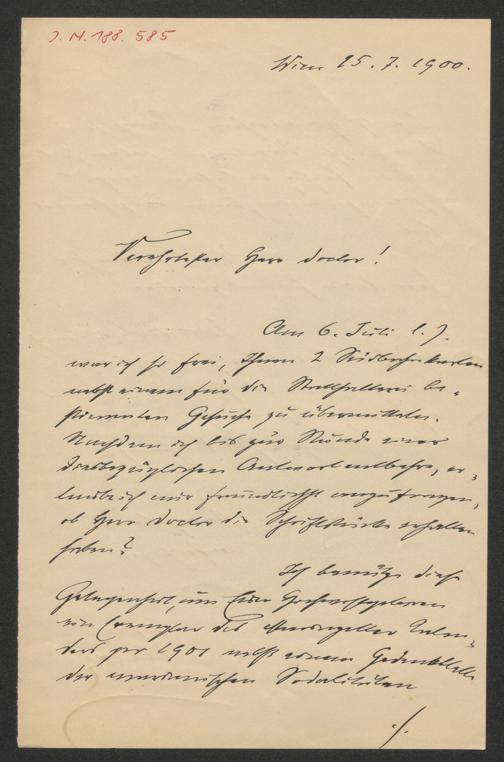 J. N. 188. 585
Wien 25. 7. 1900.
Verehrtester Herr Doctor!
Am 6. Juli l. J.
war ich so frei, Ihnen 2 Südbahnkarten
nebst einem für die Statthalterei be-
stimmten Gesuche zu übermitteln.
Nachdem ich bis zur Stunde einer
diesbezüglichen Antwort entbehre, er-
laube ich mir freundlichst anzufragen,
ob Herr Doctor die Schriftstücke erhalten
haben?
Ich benütze diese
Gelegenheit, um Euer Hochwohlgeboren
ein Exemplar des Mariazeller Kalen-
ders pro 1901 nebst einem Gedenkblatte
der marianischen Sodalitäten
./.